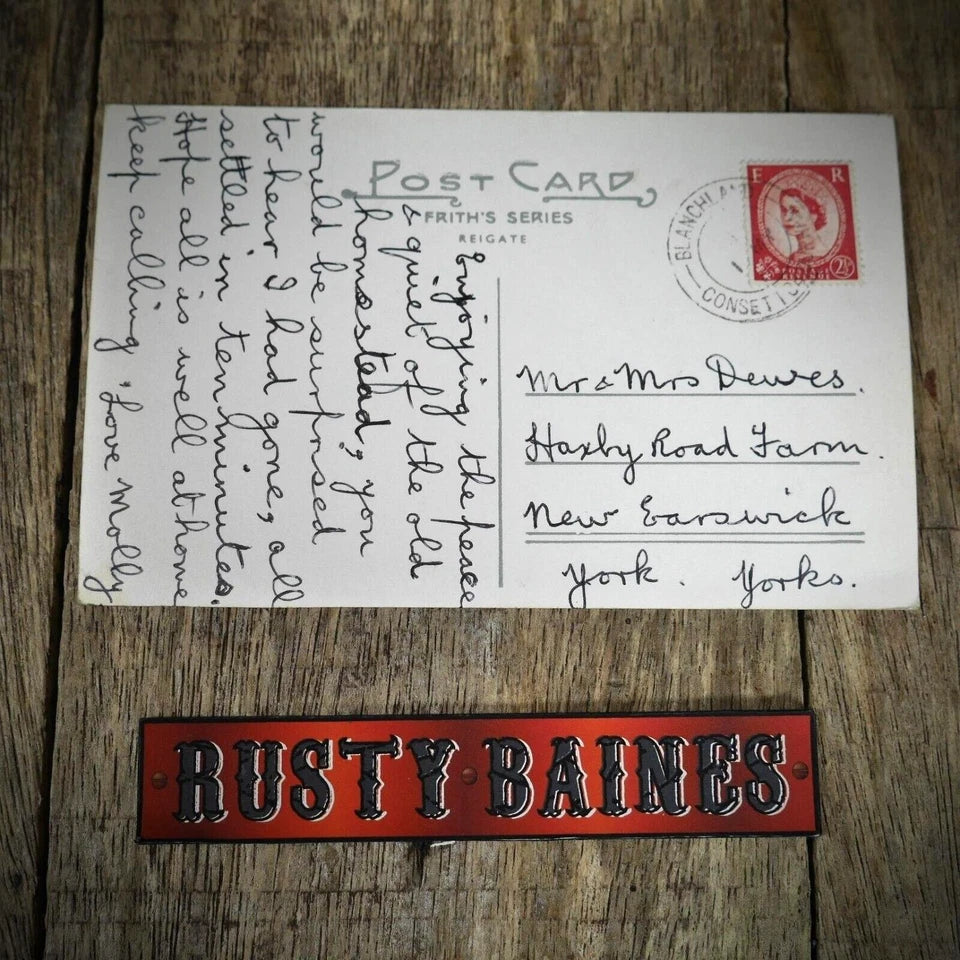 POST CARD
FRITH'S SERIES
REIGATE
Enjoying the peace
& quiet of the old
homestead, you
would be surprised
to hear I had gone, all
settled in ten minutes.
Hope all is well at home
keep calling. Love Molly
BLANCHLAND
CONSETT CO.
E R
POSTAGE
REVENUE
2½
Mr & Mrs Dewes.
Haxby Road Farm.
New Earswick
York. Yorks.
RUSTY BAINES